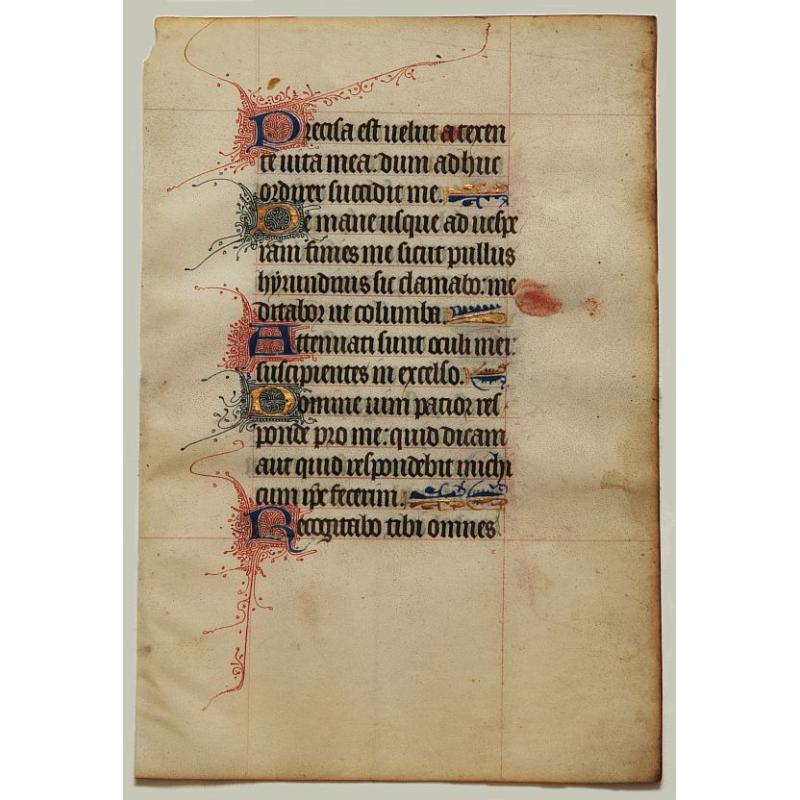 Precisa est uelut a texen
te uita mea: dum adhuc
ordirer succidit me.
De mane usque ad uespe
ram finies me sicut pullus
hyrundinis sic clamabo: me
ditabor ut columba.
Attenuati sunt oculi mei:
suscipientes in excelso.
Domine uim patior res
ponde pro me: quid dicam
aut quid respondebit michi
cum ipse fecerim.
Recogitabo tibi omnes